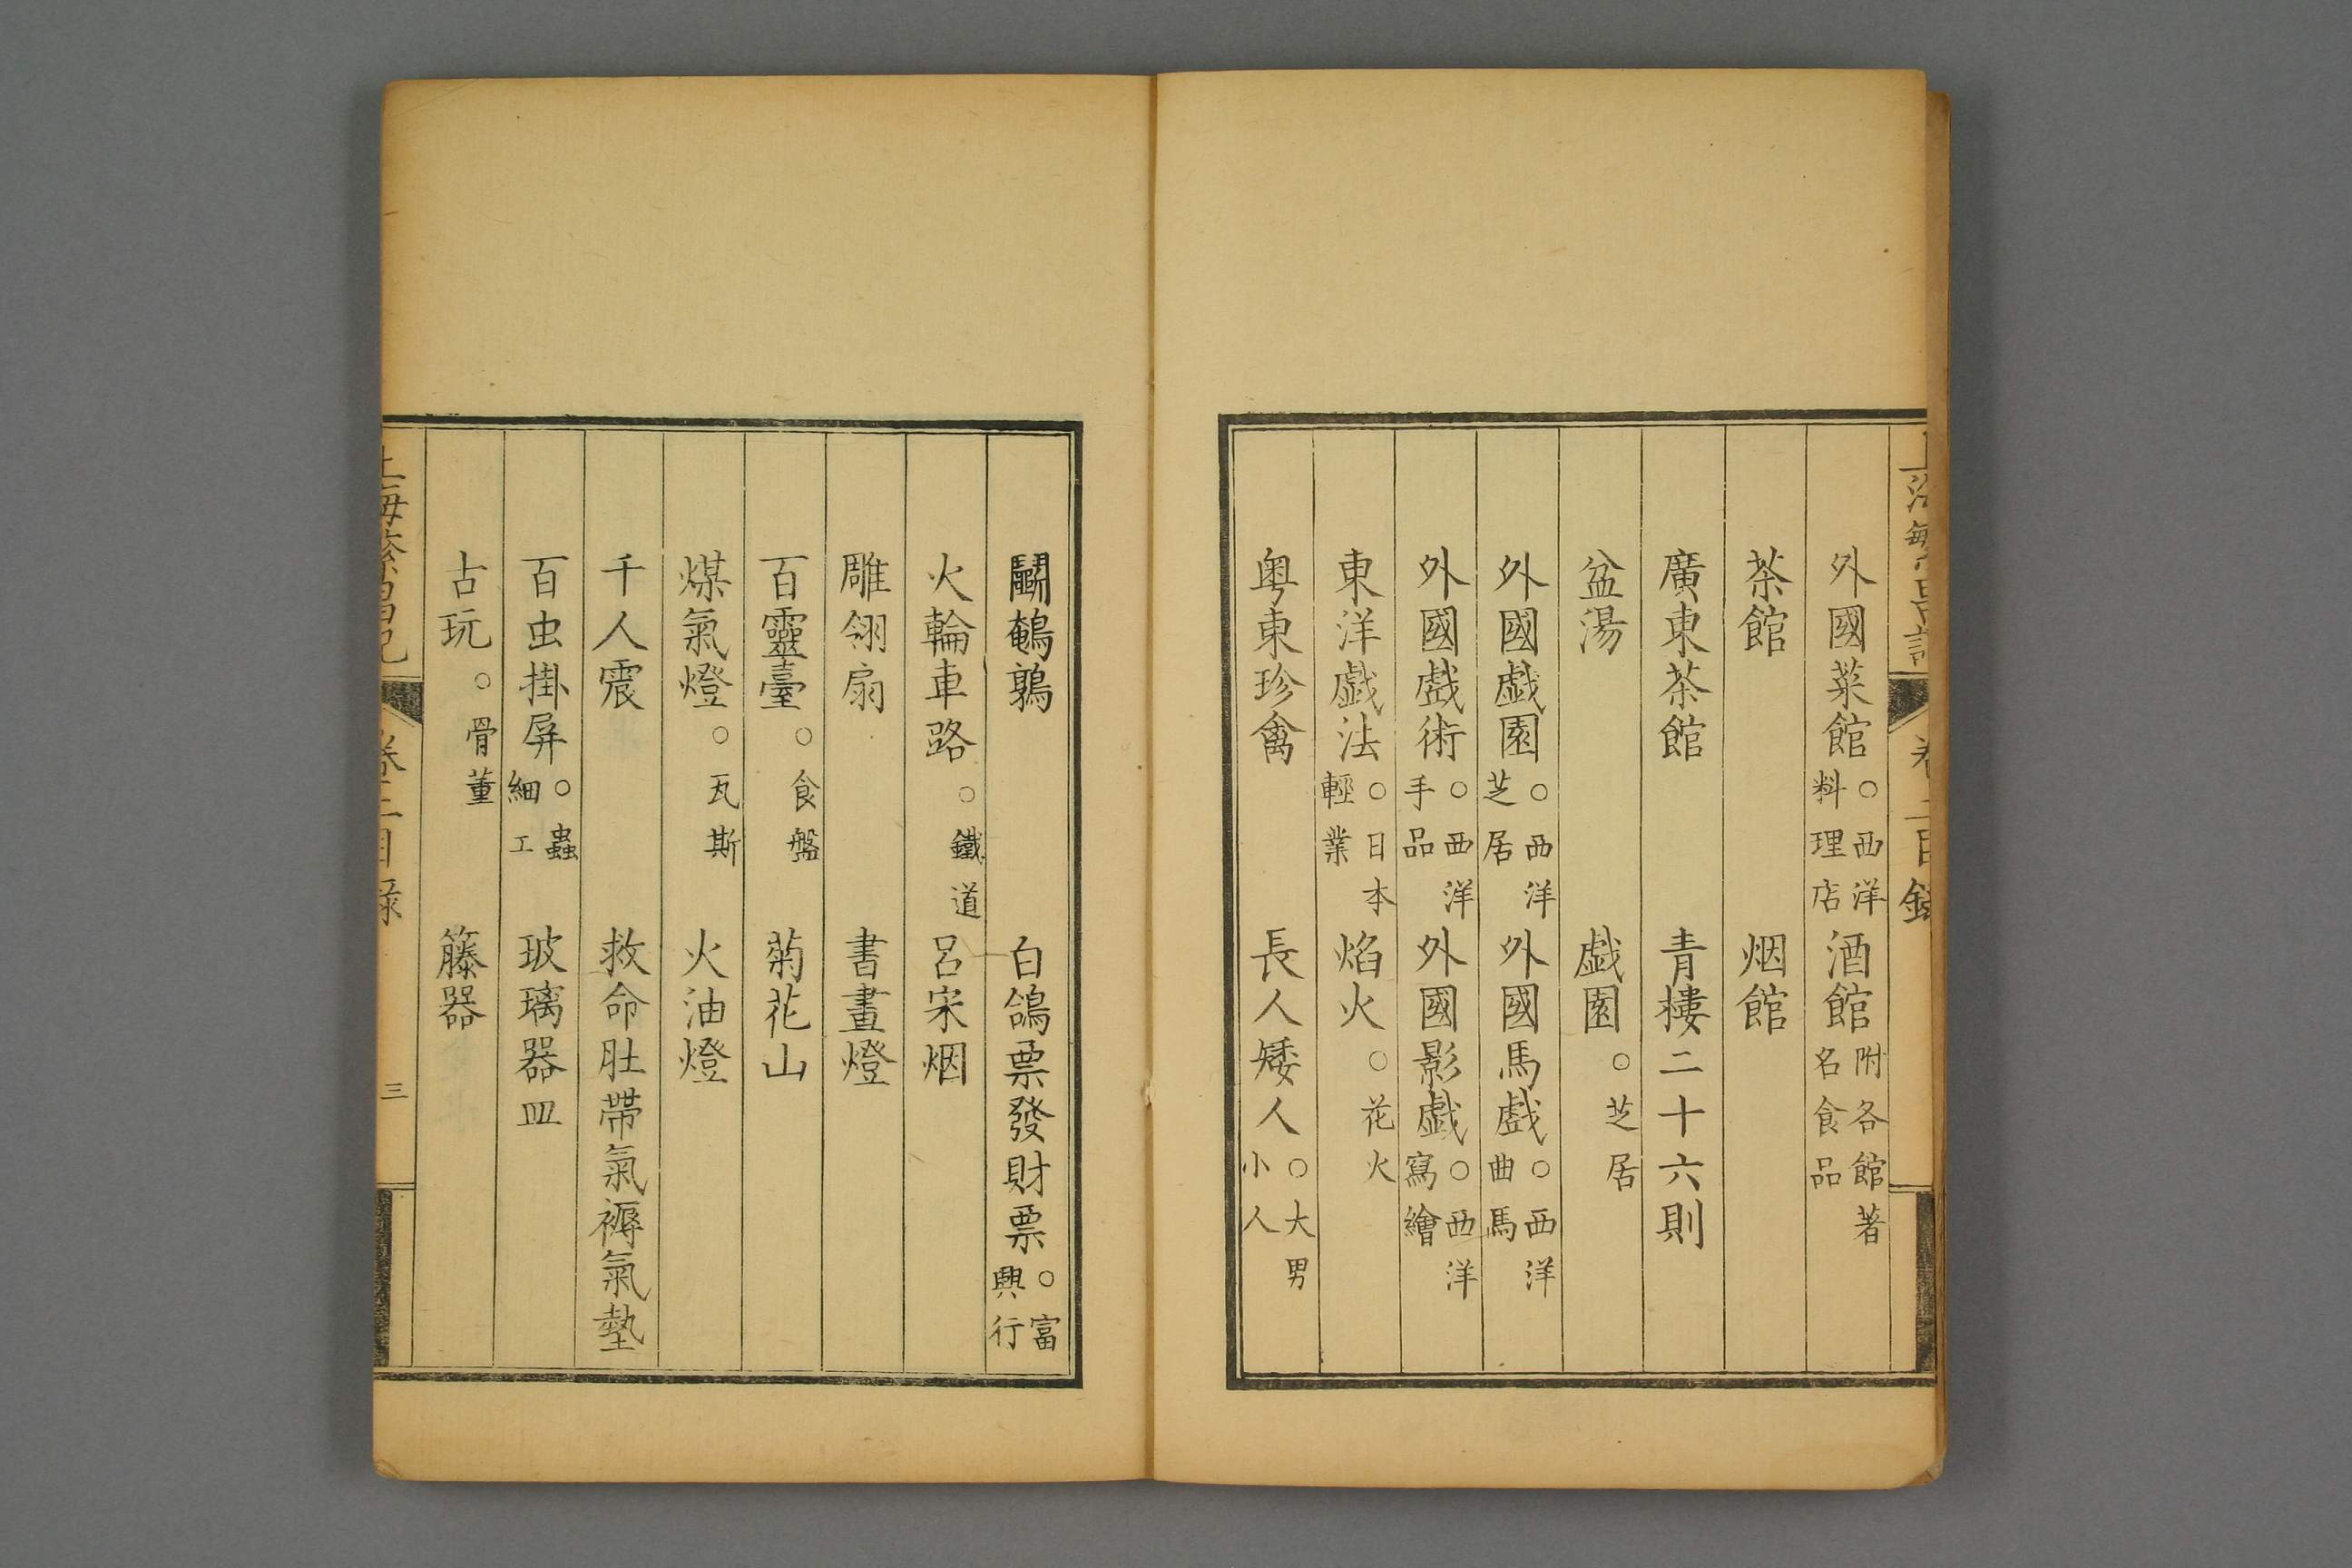 上海繁昌記 卷二目錄
外國菜館○西洋料理店 酒館附各館著名食品
茶館 烟館
廣東茶館 青樓二十六則
盆湯 戯園○芝居
外國戯園○西洋芝居 外國馬戯○西洋曲馬
外國戯術○西洋手品 外國影戯○西洋寫繪
東洋戯法○日本輕業 焰火○花火
粤東珍禽 長人矮人○大男小人
鬭鵪鶉 白鴿票發財票○富興行
火輪車路○鐵道 呂宋烟
雕翎扇 書畫燈
百靈臺○食盤 菊花山
煤氣燈○瓦斯 火油燈
千人震 救命肚帶氣褥氣墊
百虫掛屏○蟲細工 玻璃器皿
古玩○骨董 籐器
上海繁昌記 卷二目錄 三